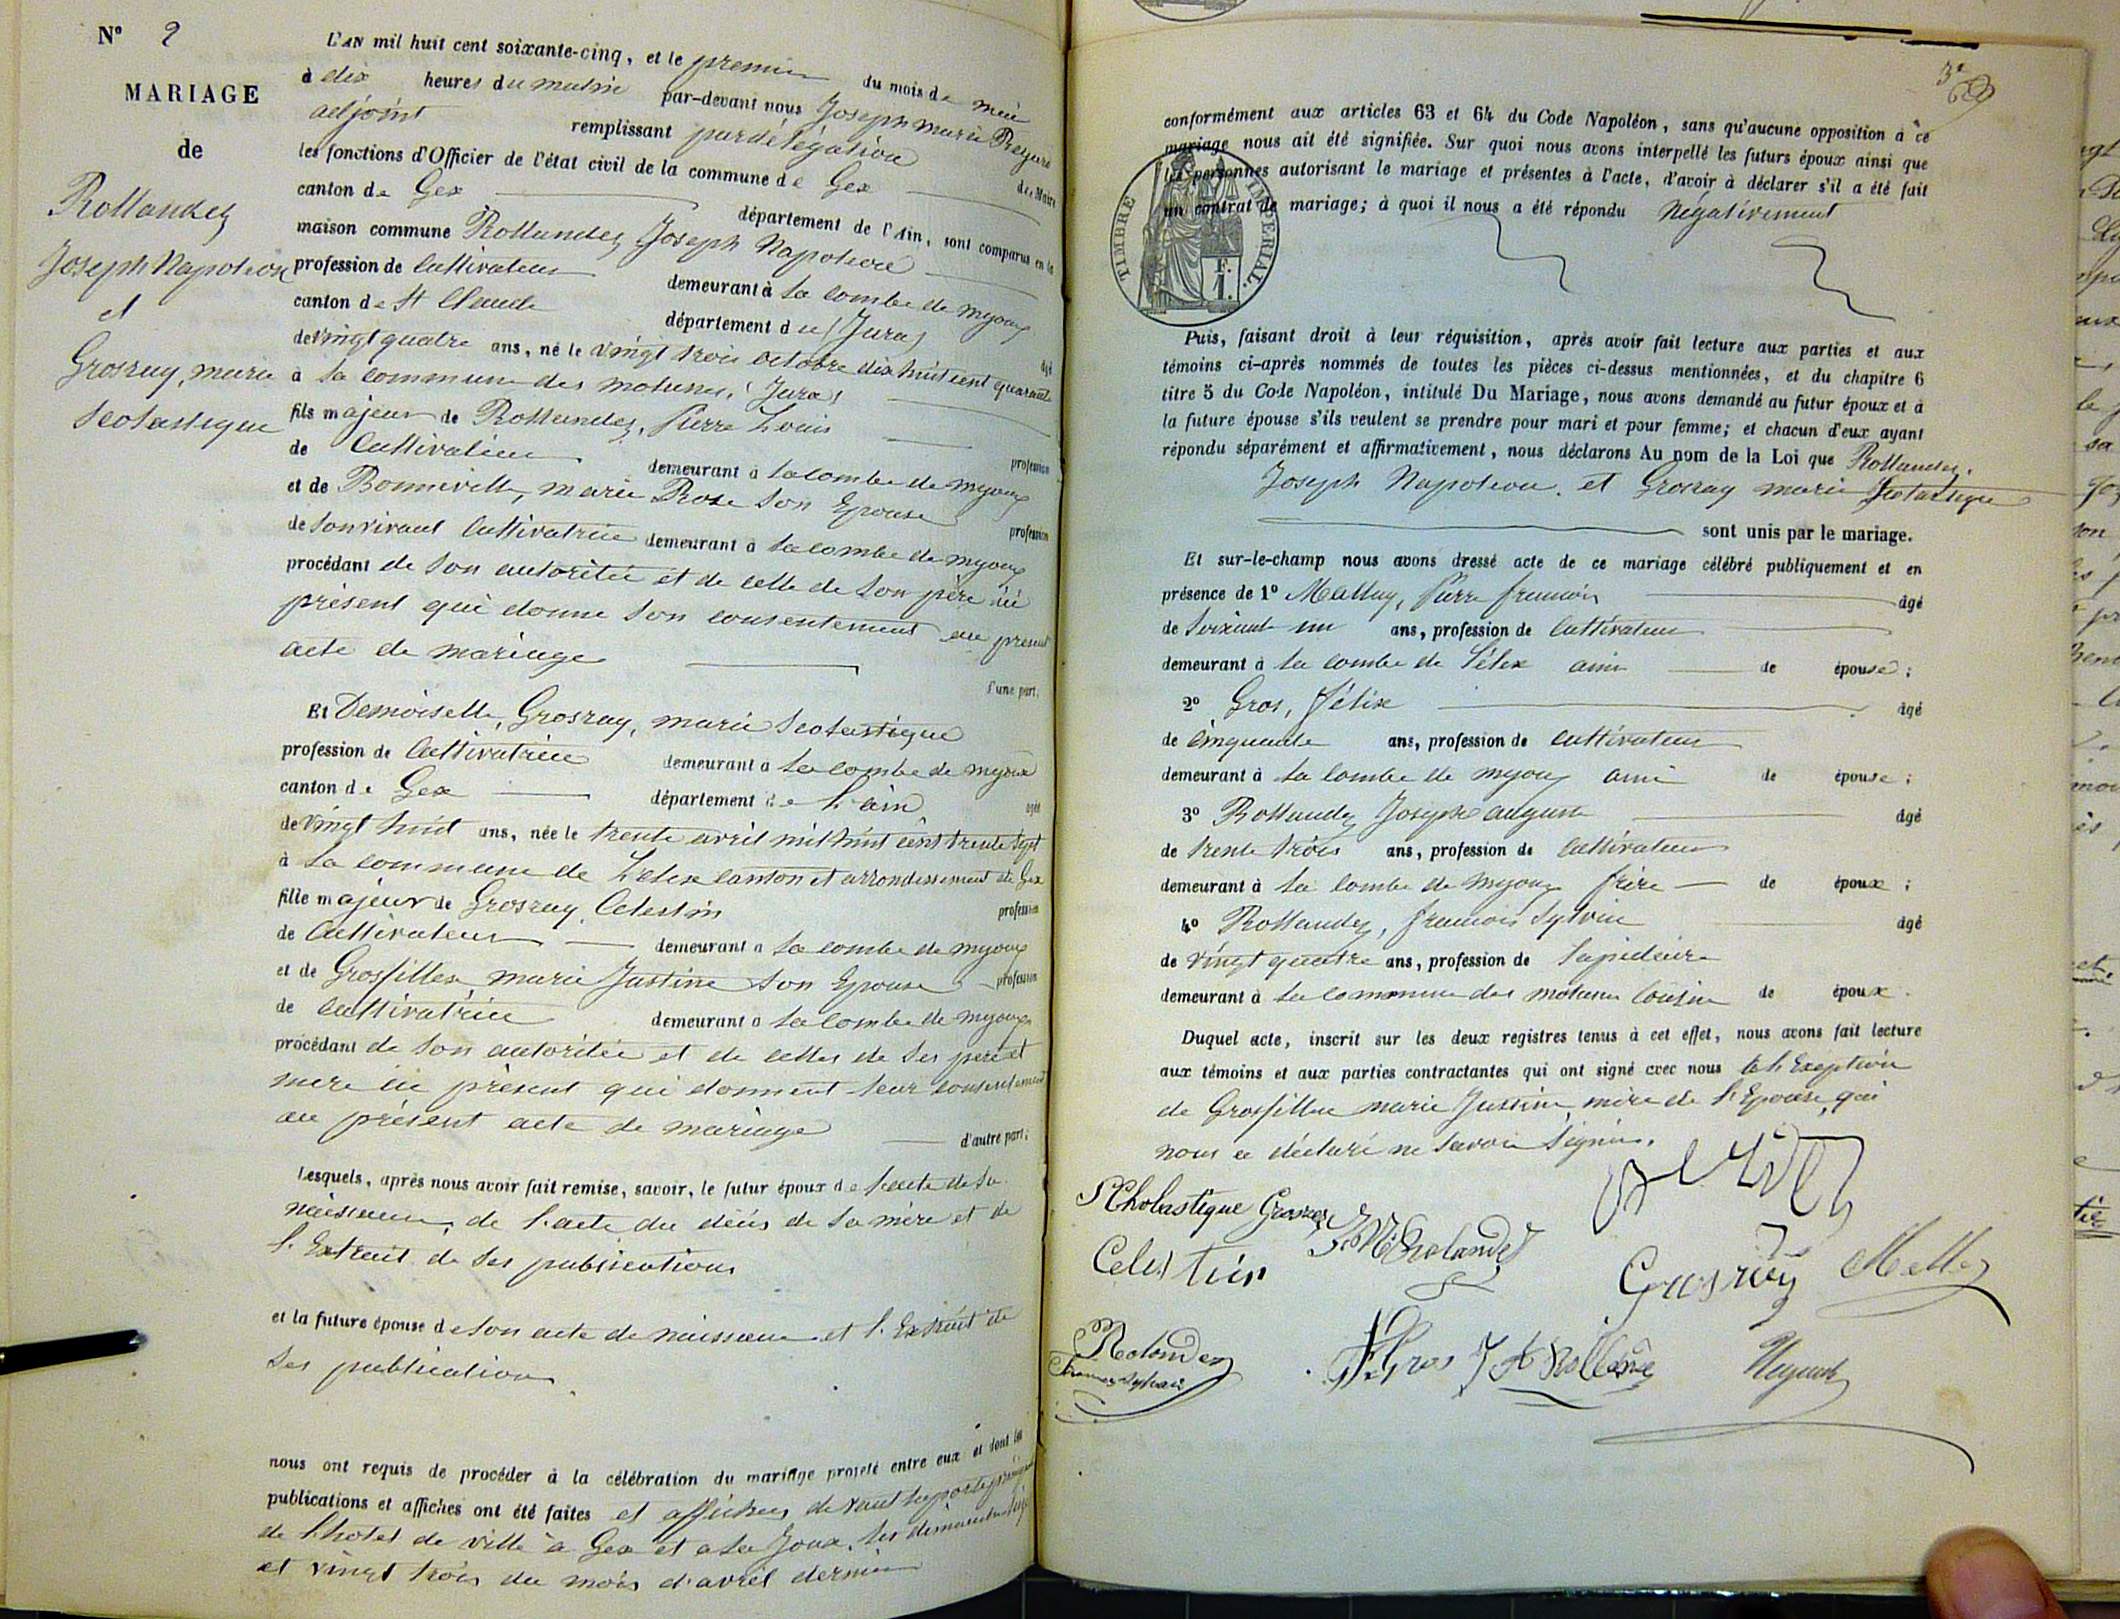 N° 2
MARIAGE
de
Rollandez
Joseph Napoléon
et
Grosruy, marie
Scolastique
L'AN mil huit cent soixante-cinq, et le premier du mois de mai
à dix heures du matin par-devant nous Joseph marie
adjoint remplissant par délégation de Maire
les fonctions d'Officier de l'état civil de la commune de Gex
canton de Gex département de l'Ain, sont comparus en la
maison commune Rollandez Joseph Napoléon
profession de Cultivateur demeurant à la combe de myoux
canton de St Claude département du (Jura) âgé
de vingt quatre ans, né le vingt trois octobre dix huit cent quarante
à la commune des molunes, (Jura)
fils majeur de Rollandez, Pierre Louis profession
de Cultivateur demeurant à la combe de myoux
et de Bonneville, marie Rose son Epouse profession
de son vivant Cultivatrice demeurant à la combe de myoux
procédant de son autoritée et de celle de son père ici
présent qui donne son consentement au présent
acte de mariage d'une part,
Et Demoiselle, Grosruy, marie Scolastique
profession de Cultivatrice demeurant à la combe de myoux
canton de Gex département de L'ain agée
de vingt huit ans, née le trente avril mil huit cent trente sept
à la commune de Lelex canton et arrondissement de Gex
fille majeur de Grosruy Celestin profession
de Cultivateur demeurant à la combe de myoux
et de Grosfillex marie Justine son Epouse profession
de Cultivatrice demeurant à la combe de myoux
procédant de son autoritée et de celles de ses père et
mere ici présent qui donnent leur consentement
au présent acte de mariage d'autre part;
Lesquels, après nous avoir fait remise, savoir, le futur époux de l'acte de sa
naissance, de l'acte du décès de sa mère et de
l'Extrait de ses publications
et la future épouse de son acte de naissance et l'Extrait de
ses publications
nous ont requis de procéder à la célébration du mariage projeté entre eux et dont les
publications et affiches ont été faites et affichées devant la porte
de l'hotel de ville à Gex et a la Joux, les dimanches
et vingt trois du mois d'avril dernier
3e
69
conformément aux articles 63 et 64 du Code Napoléon, sans qu'aucune opposition à ce
mariage nous ait été signifiée. Sur quoi nous avons interpellé les futurs époux ainsi que
les personnes autorisant le mariage et présentes à l'acte, d'avoir à déclarer s'il a été fait
un contrat de mariage; à quoi il nous a été répondu négativement
TIMBRE IMPÉRIAL.
F.
1.
Puis, faisant droit à leur réquisition, après avoir fait lecture aux parties et aux
témoins ci-après nommés de toutes les pièces ci-dessus mentionnées, et du chapitre 6
titre 5 du Code Napoléon, intitulé Du Mariage, nous avons demandé au futur époux et à
la future épouse s'ils veulent se prendre pour mari et pour femme; et chacun d'eux ayant
répondu séparément et affirmativement, nous déclarons Au nom de la Loi que Rollandez,
Joseph Napoléon et Grosruy marie Scolastique
sont unis par le mariage.
Et sur-le-champ nous avons dressé acte de ce mariage célébré publiquement et en
présence de 1° Mathey, Pierre françois âgé
de soixante un ans, profession de Cultivateur
demeurant à la combe de Lélex ami de épouse;
2° Gros, félix âgé
de cinquante ans, profession de cultivateur
demeurant à la combe de myoux ami de épouse;
3° Rollandez Joseph auguste âgé
de trente trois ans, profession de Cultivateur
demeurant à la combe de myoux frère de époux;
4° Rollandez, françois Sylvin âgé
de vingt quatre ans, profession de lapidaire
demeurant à la commune des molunes Cousin de époux.
Duquel acte, inscrit sur les deux registres tenus à cet effet, nous avons fait lecture
aux témoins et aux parties contractantes qui ont signé avec nous à l'Exception
de Grosfillex marie Justine, mère de l'Epouse, qui
nous a déclaré ne savoir signer.
Scholastique
Celestin
Rolandez
Gros